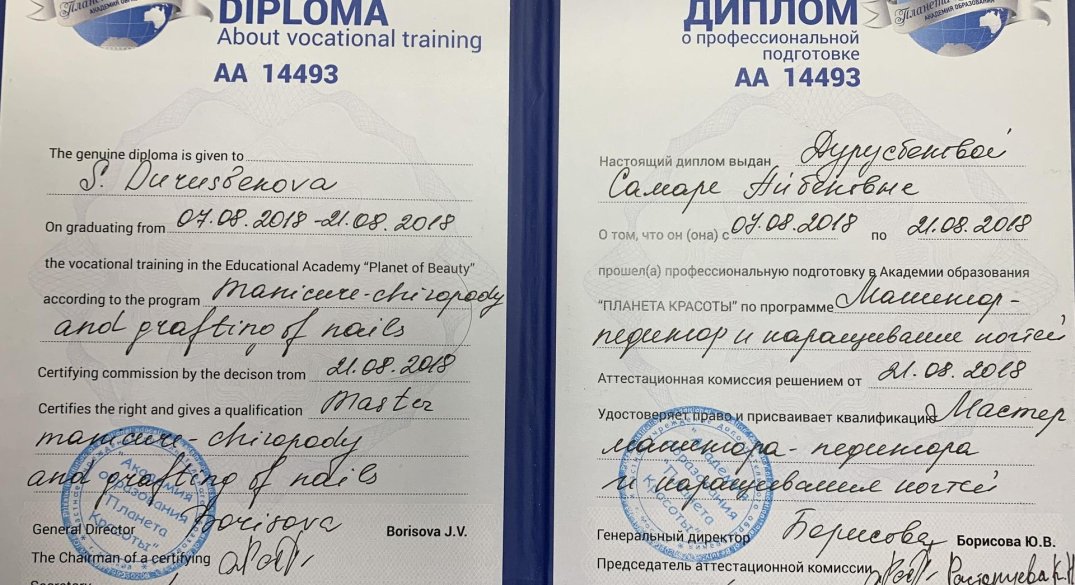 DIPLOMA
About vocational training
AA 14493
The genuine diploma is given to
S. Durusbekova
On graduating from 07.08.2018-21.08.2018
the vocational training in the Educational Academy “Planet of Beauty”
according to the program manicure-chiropody
and grafting of nails
Certifying commission by the decison trom 21.08.2018
Certifies the right and gives a qualification Master
manicure-chiropody
and grafting of nails
"Академия образования Планета Красоты"
General Director Borisova Borisova J.V.
The Chairman of a certifying
Планета
АКАДЕМИЯ ОБРАЗОВАНИЯ
ДИПЛОМ
о профессиональной
подготовке
АА 14493
Настоящий диплом выдан Дурусбековой
Самаре Айбековне
О том, что он (она) с 07.08.2018 по 21.08.2018
прошел(а) профессиональную подготовку в Академии образования
“ПЛАНЕТА КРАСОТЫ” по программе Маникюр-
педикюр и наращивание ногтей
Аттестационная комиссия решением от 21.08.2018
Удостоверяет право и присваивает квалификацию Мастер
маникюра-педикюра
и наращивания ногтей
Академия образования Планета Красоты"
Генеральный директор Борисова Борисова Ю.В.
Председатель аттестационной комиссии